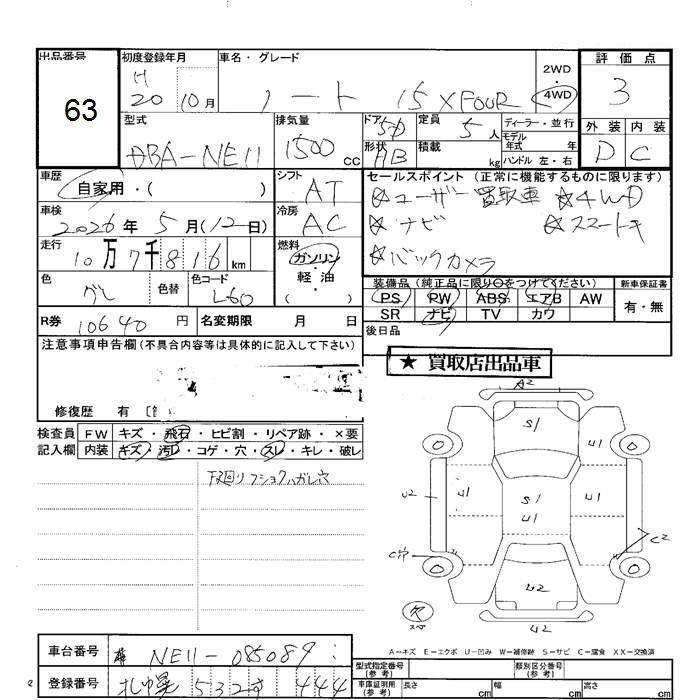 出品番号
63
初度登録年月
H 20 10月
車名・グレード
ノート 15 X FOUR
2WD
4WD
評価点
3
外装 内装
D C
型式
DBA-NE11
排気量
1500 cc
ドア 5D
形状 HB
定員 5 人
積載 kg
ディーラー・並行
モデル年式 年式
ハンドル 左・右
車歴
自家用・( )
シフト
AT
車検
2026年 5月(12日)
冷房
AC
走行
10万7千816 km
燃料
ガソリン
軽油
( )
色
グレ
色替
色コード
L60
R券 10640 円
名変期限 月 日
セールスポイント (正常に機能するものに限ります)
☆ユーザー買取車 ☆4WD
☆ナビ ☆スマートキ
☆バックカメラ
装備品(純正品に限り○をつけてください)
PS PW ABS エアB AW
SR ナビ TV カワ
新車保証書
有・無
後日品
注意事項申告欄(不具合内容等は具体的に記入して下さい)
修復歴 有
★ 買取店出品車
検査員 FW キズ・飛石・ヒビ割・リペア跡・×要
記入欄 内装 キズ・汚レ・コゲ・穴・スレ・キレ・破レ
下廻りフショクハガレ穴
A2
S1
U1
U2
U1
S1
U1
U1
C2
C穴
U2
U2
欠
スペア
A―キズ E―エクボ U―凹み W―補修跡 S―サビ C―腐食 XX―交換済
車台番号 NE11-085089
登録番号 札幌 532す 444
型式指定番号(参考)
類別区分番号(参考)
車庫証明用(参考) 長さ cm 幅 cm 高さ cm